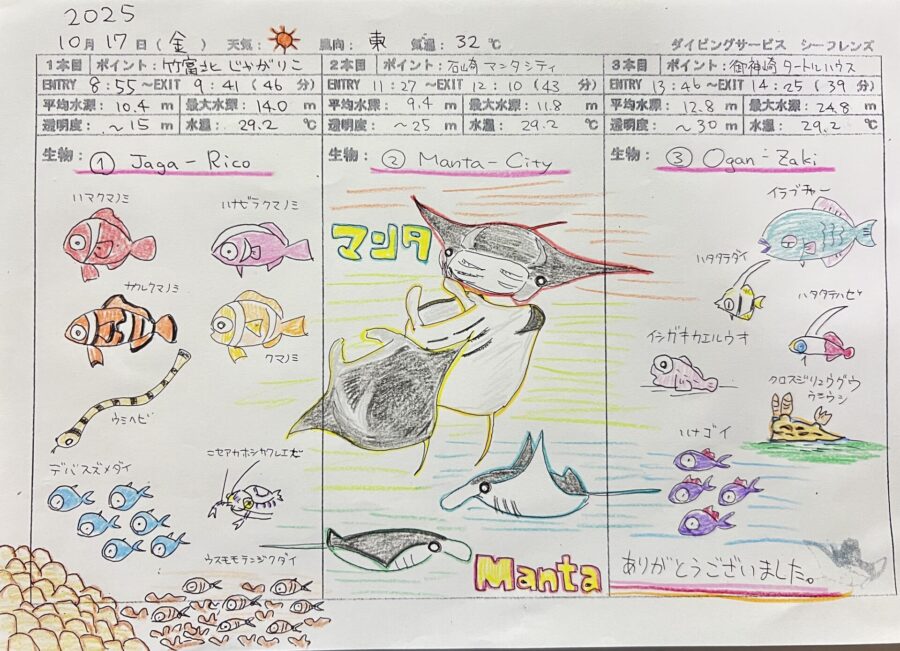 2025
10月 17日 (金) 天気: 風向: 東 気温: 32℃ ダイビングサービス シーフレンズ
1本目 ポイント: 竹富北 じゃがりこ
ENTRY 8:55 ~EXIT 9:41 (46 分)
平均水深: 10.4 m 最大水深: 14.0 m
透明度: ~15 m 水温: 29.2 ℃
生物: ① Jaga-Rico
ハマクマノミ
ハナビラクマノミ
カクレクマノミ
クマノミ
ウミヘビ
デバスズメダイ
ニセアカホシカクレエビ
ウスモモテンジクダイ
2本目 ポイント: 石崎 マンタシティ
ENTRY 11:27 ~EXIT 12:10 (43 分)
平均水深: 9.4 m 最大水深: 11.8 m
透明度: ~25 m 水温: 29.2 ℃
生物: ② Manta-City
マンタ
Manta
3本目 ポイント: 御神崎 タートルハウス
ENTRY 13:46 ~EXIT 14:25 (39 分)
平均水深: 12.8 m 最大水深: 24.8 m
透明度: ~30 m 水温: 29.2 ℃
生物: ③ Ogan-Zaki
イラブチャー
ハタタテダイ
ハタタテハゼ
イシガキカエルウオ
クロスジリュウグウ
ウミウシ
ハナゴイ
ありがとうございました。